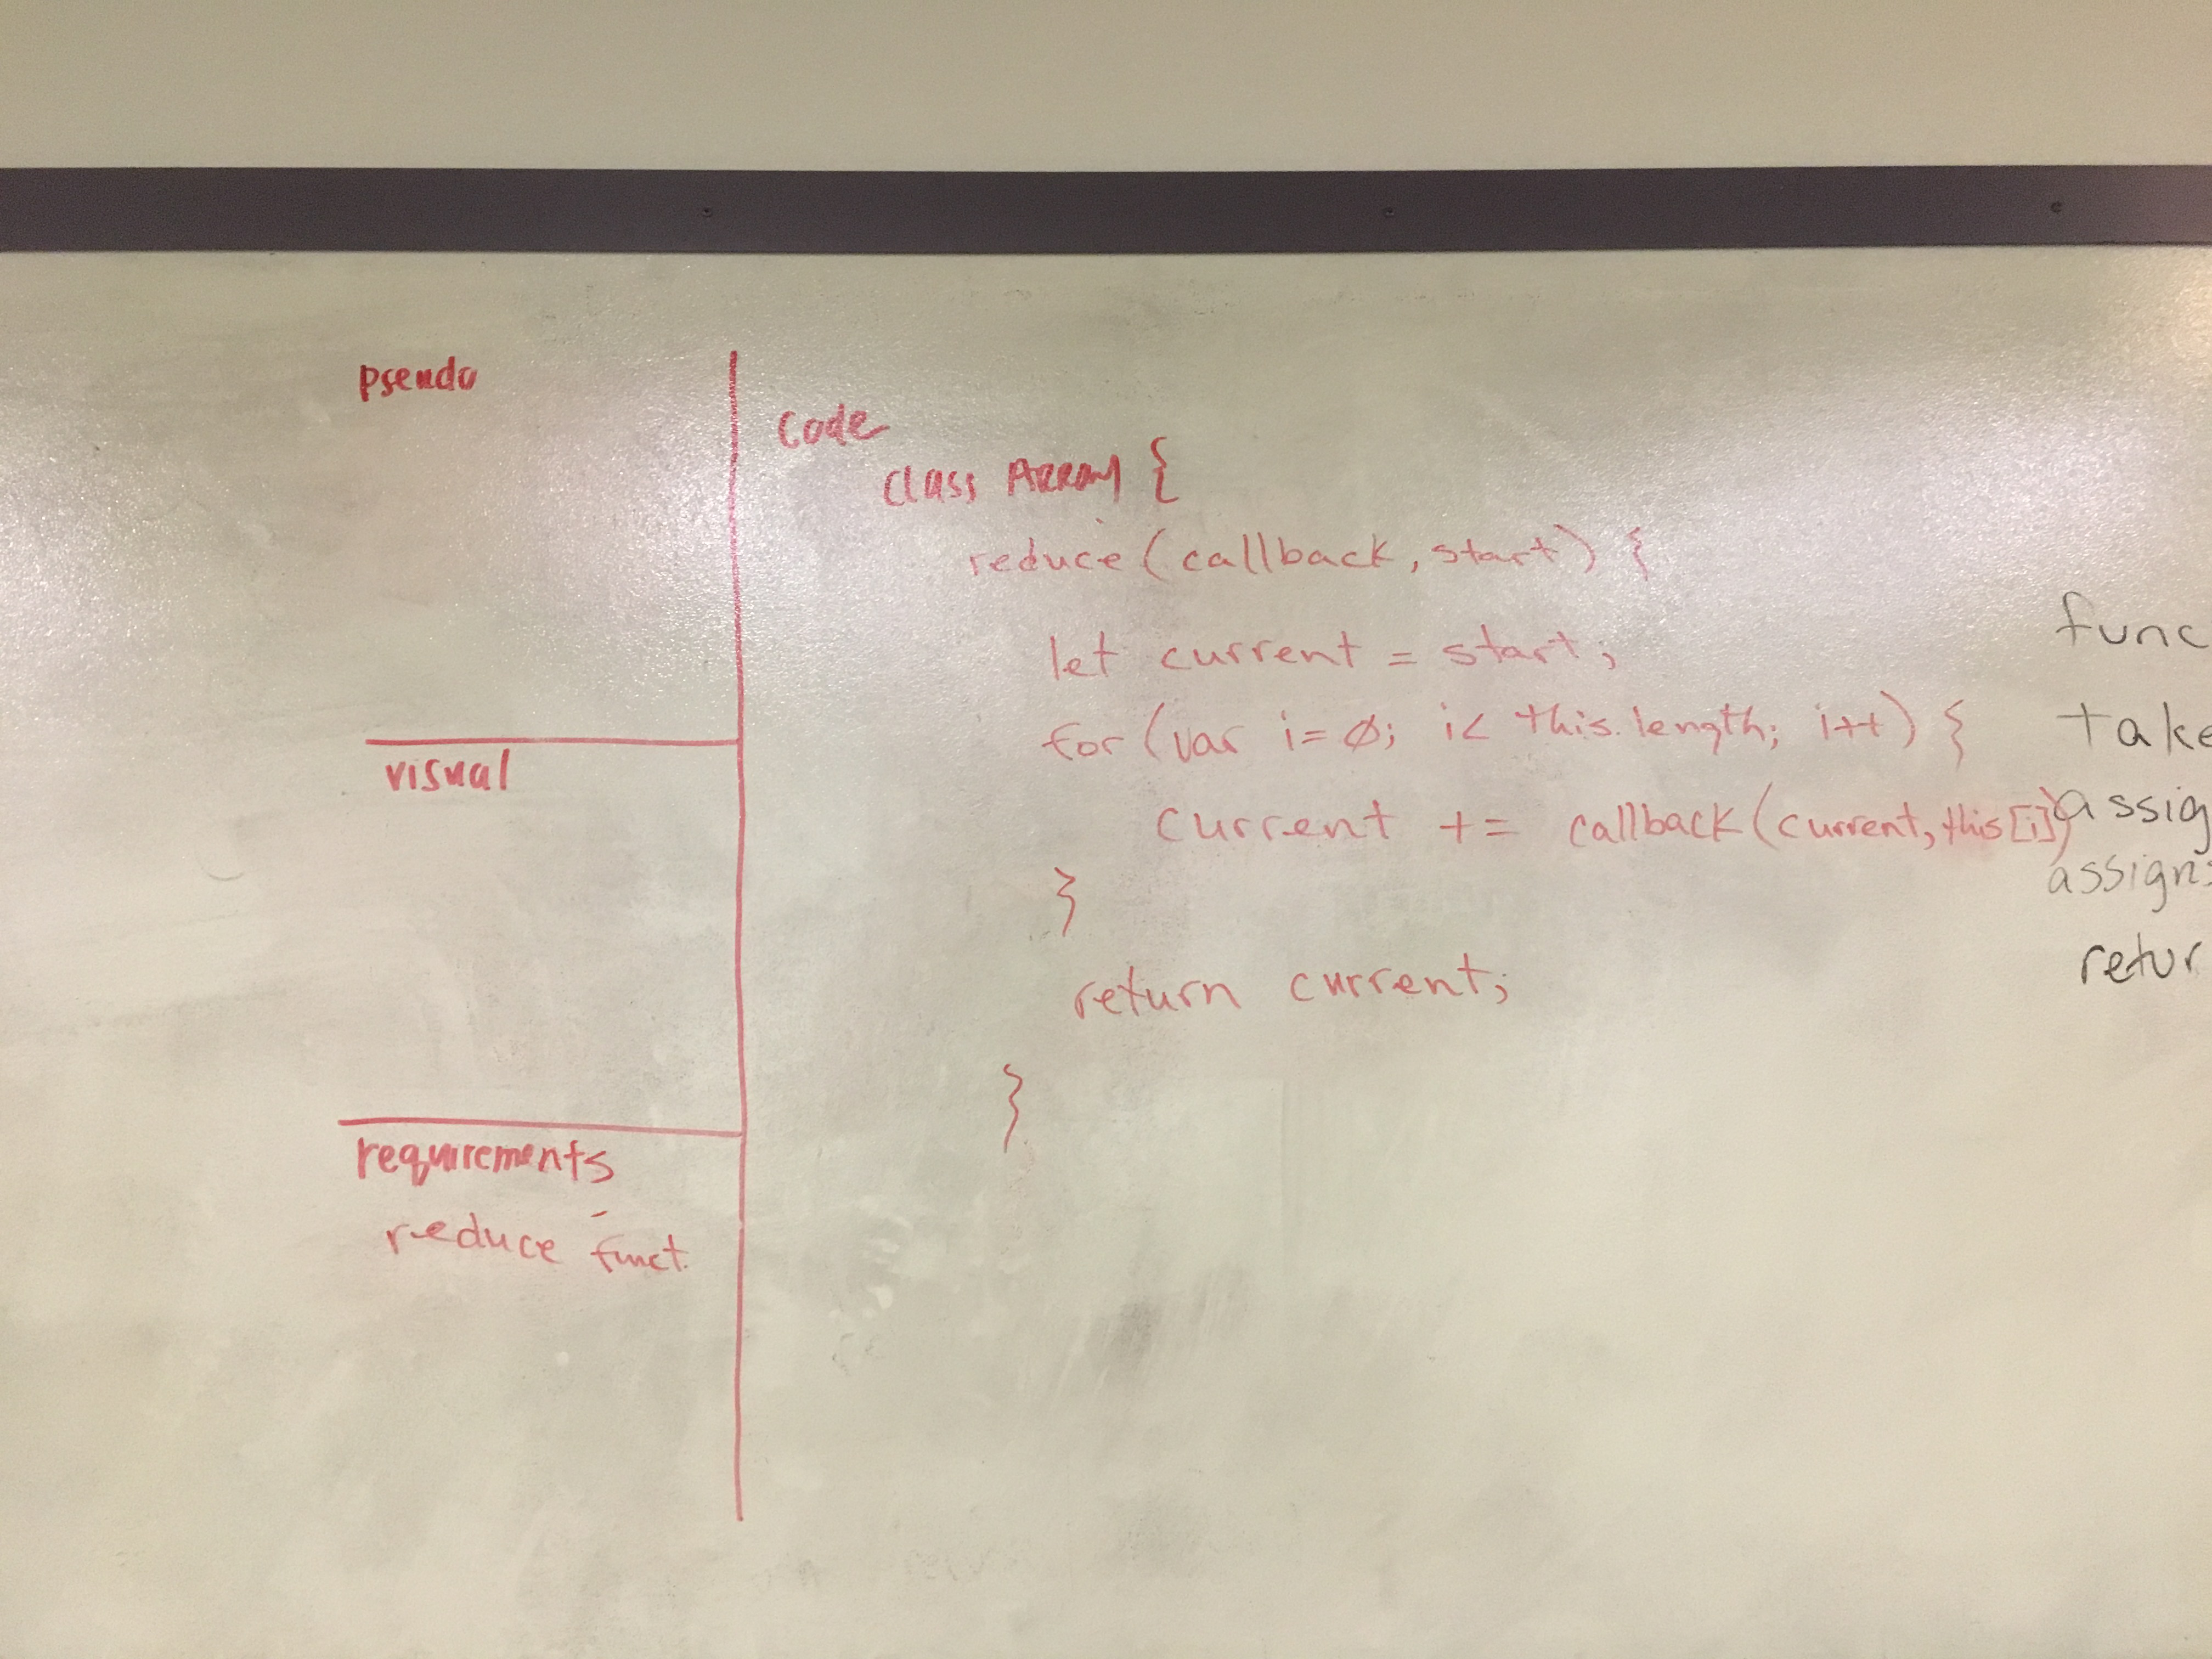 psendo
visual
requirements
reduce funct.
Code
class Array {
reduce (callback, start) {
let current = start;
for (var i=0; i< this.length; i++) {
current += callback(current, this[i])
}
return current;
}
func
take
assig
assigns
retur